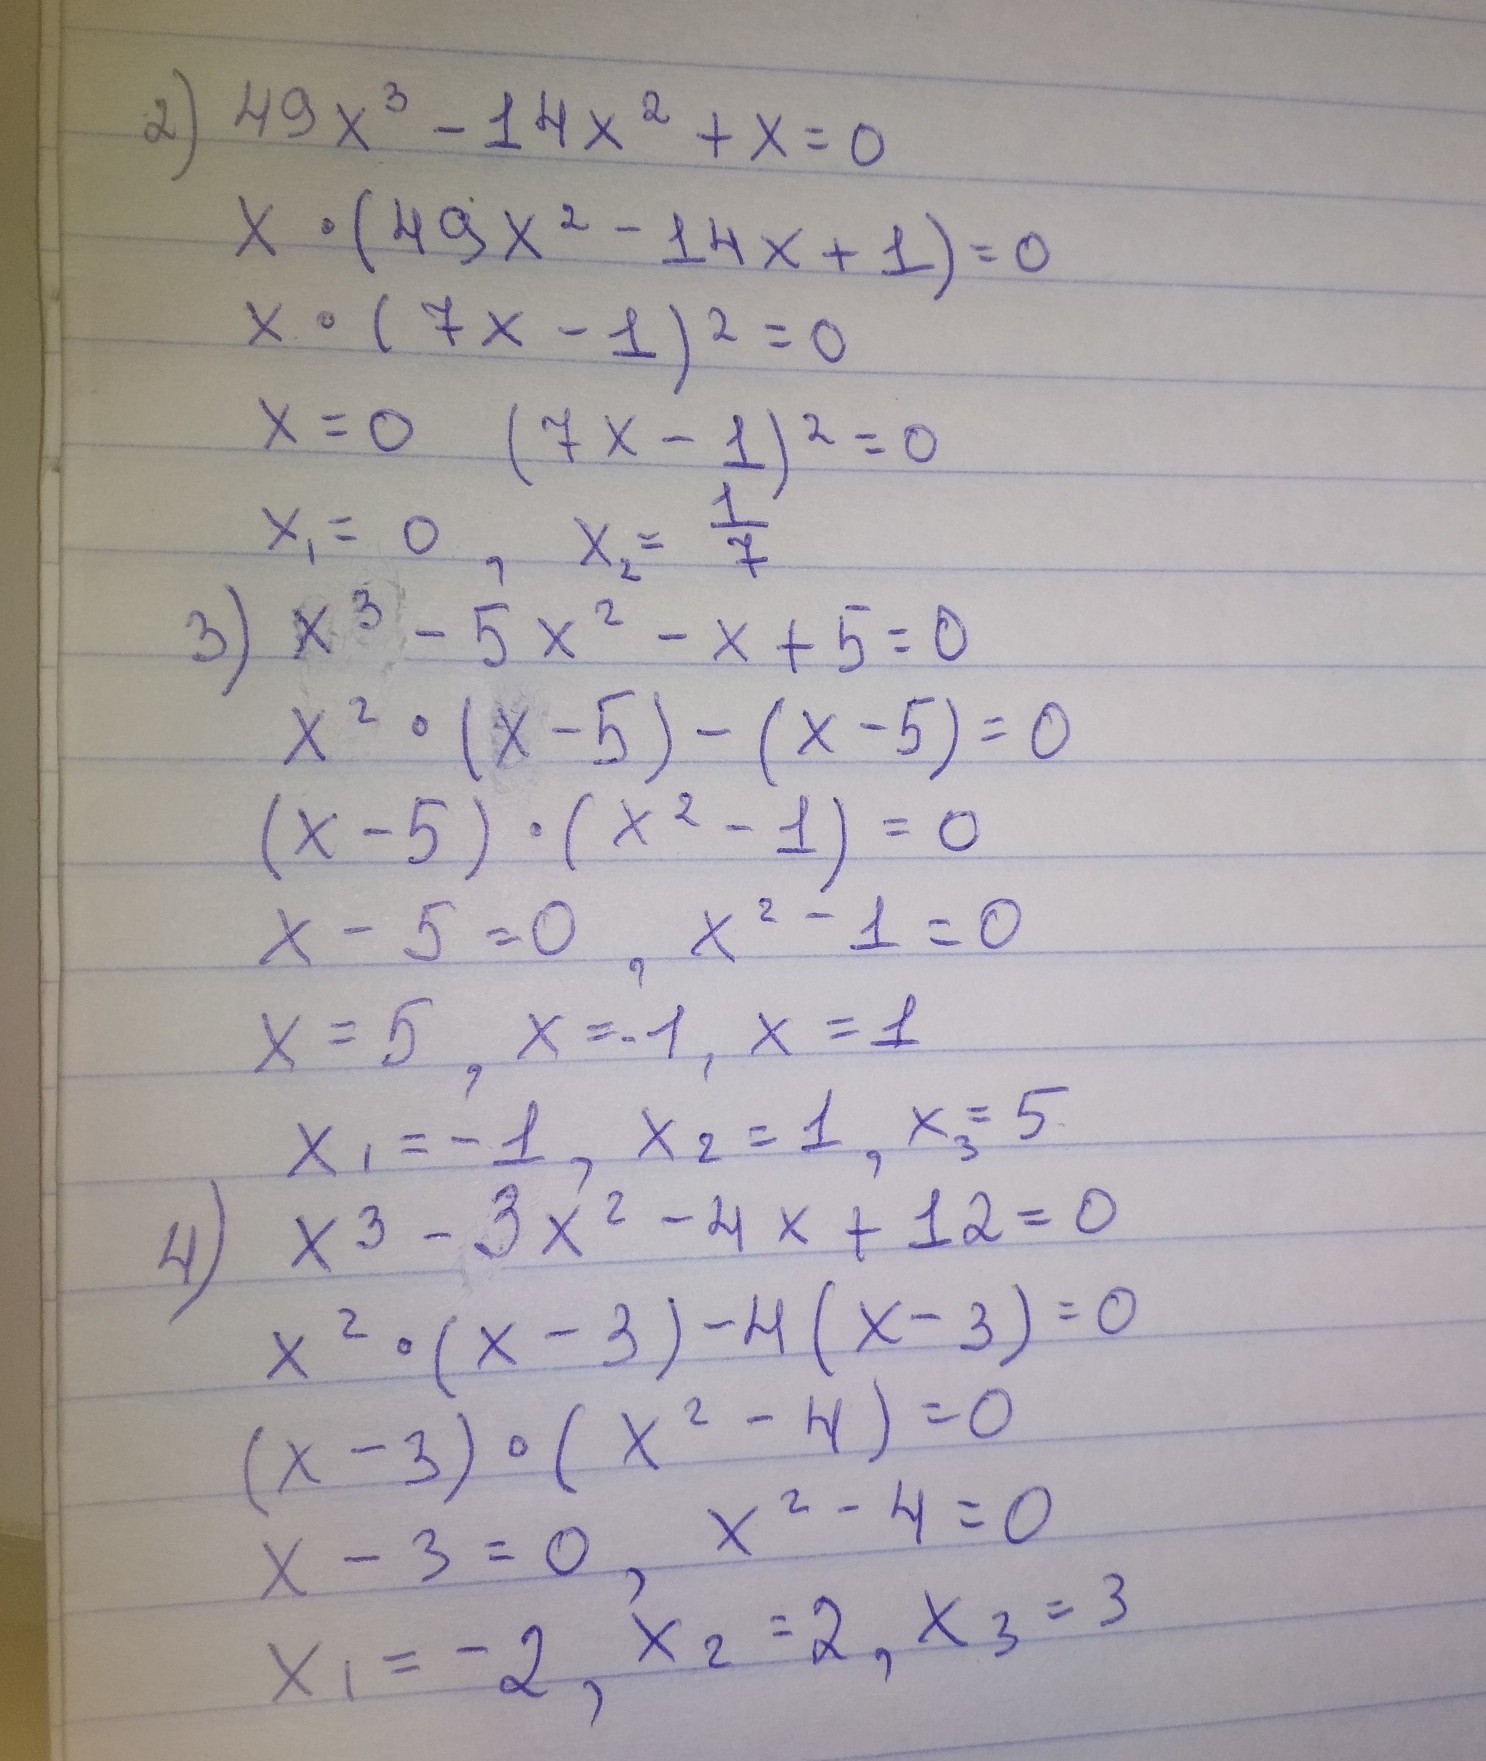 2) 49x³ - 14x² + x = 0
x · (49x² - 14x + 1) = 0
x · (7x - 1)² = 0
x = 0 (7x - 1)² = 0
x₁ = 0 , x₂ = 1/7
3) x³ - 5x² - x + 5 = 0
x² · (x - 5) - (x - 5) = 0
(x - 5) · (x² - 1) = 0
x - 5 = 0 , x² - 1 = 0
x = 5 , x = -1 , x = 1
x₁ = -1 , x₂ = 1 , x₃ = 5
4) x³ - 3x² - 4x + 12 = 0
x² · (x - 3) - 4(x - 3) = 0
(x - 3) · (x² - 4) = 0
x - 3 = 0 , x² - 4 = 0
x₁ = -2 , x₂ = 2 , x₃ = 3